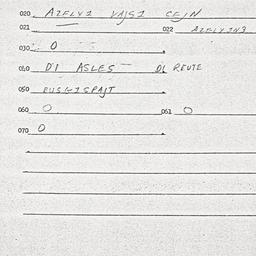 020 AZFLYI VAJSI CEJN
021 022 AZFLYJNG
030 0
040 DI ASLES — DI REUTE
050 EUSGISPAJT
060 0 061 0
070 0